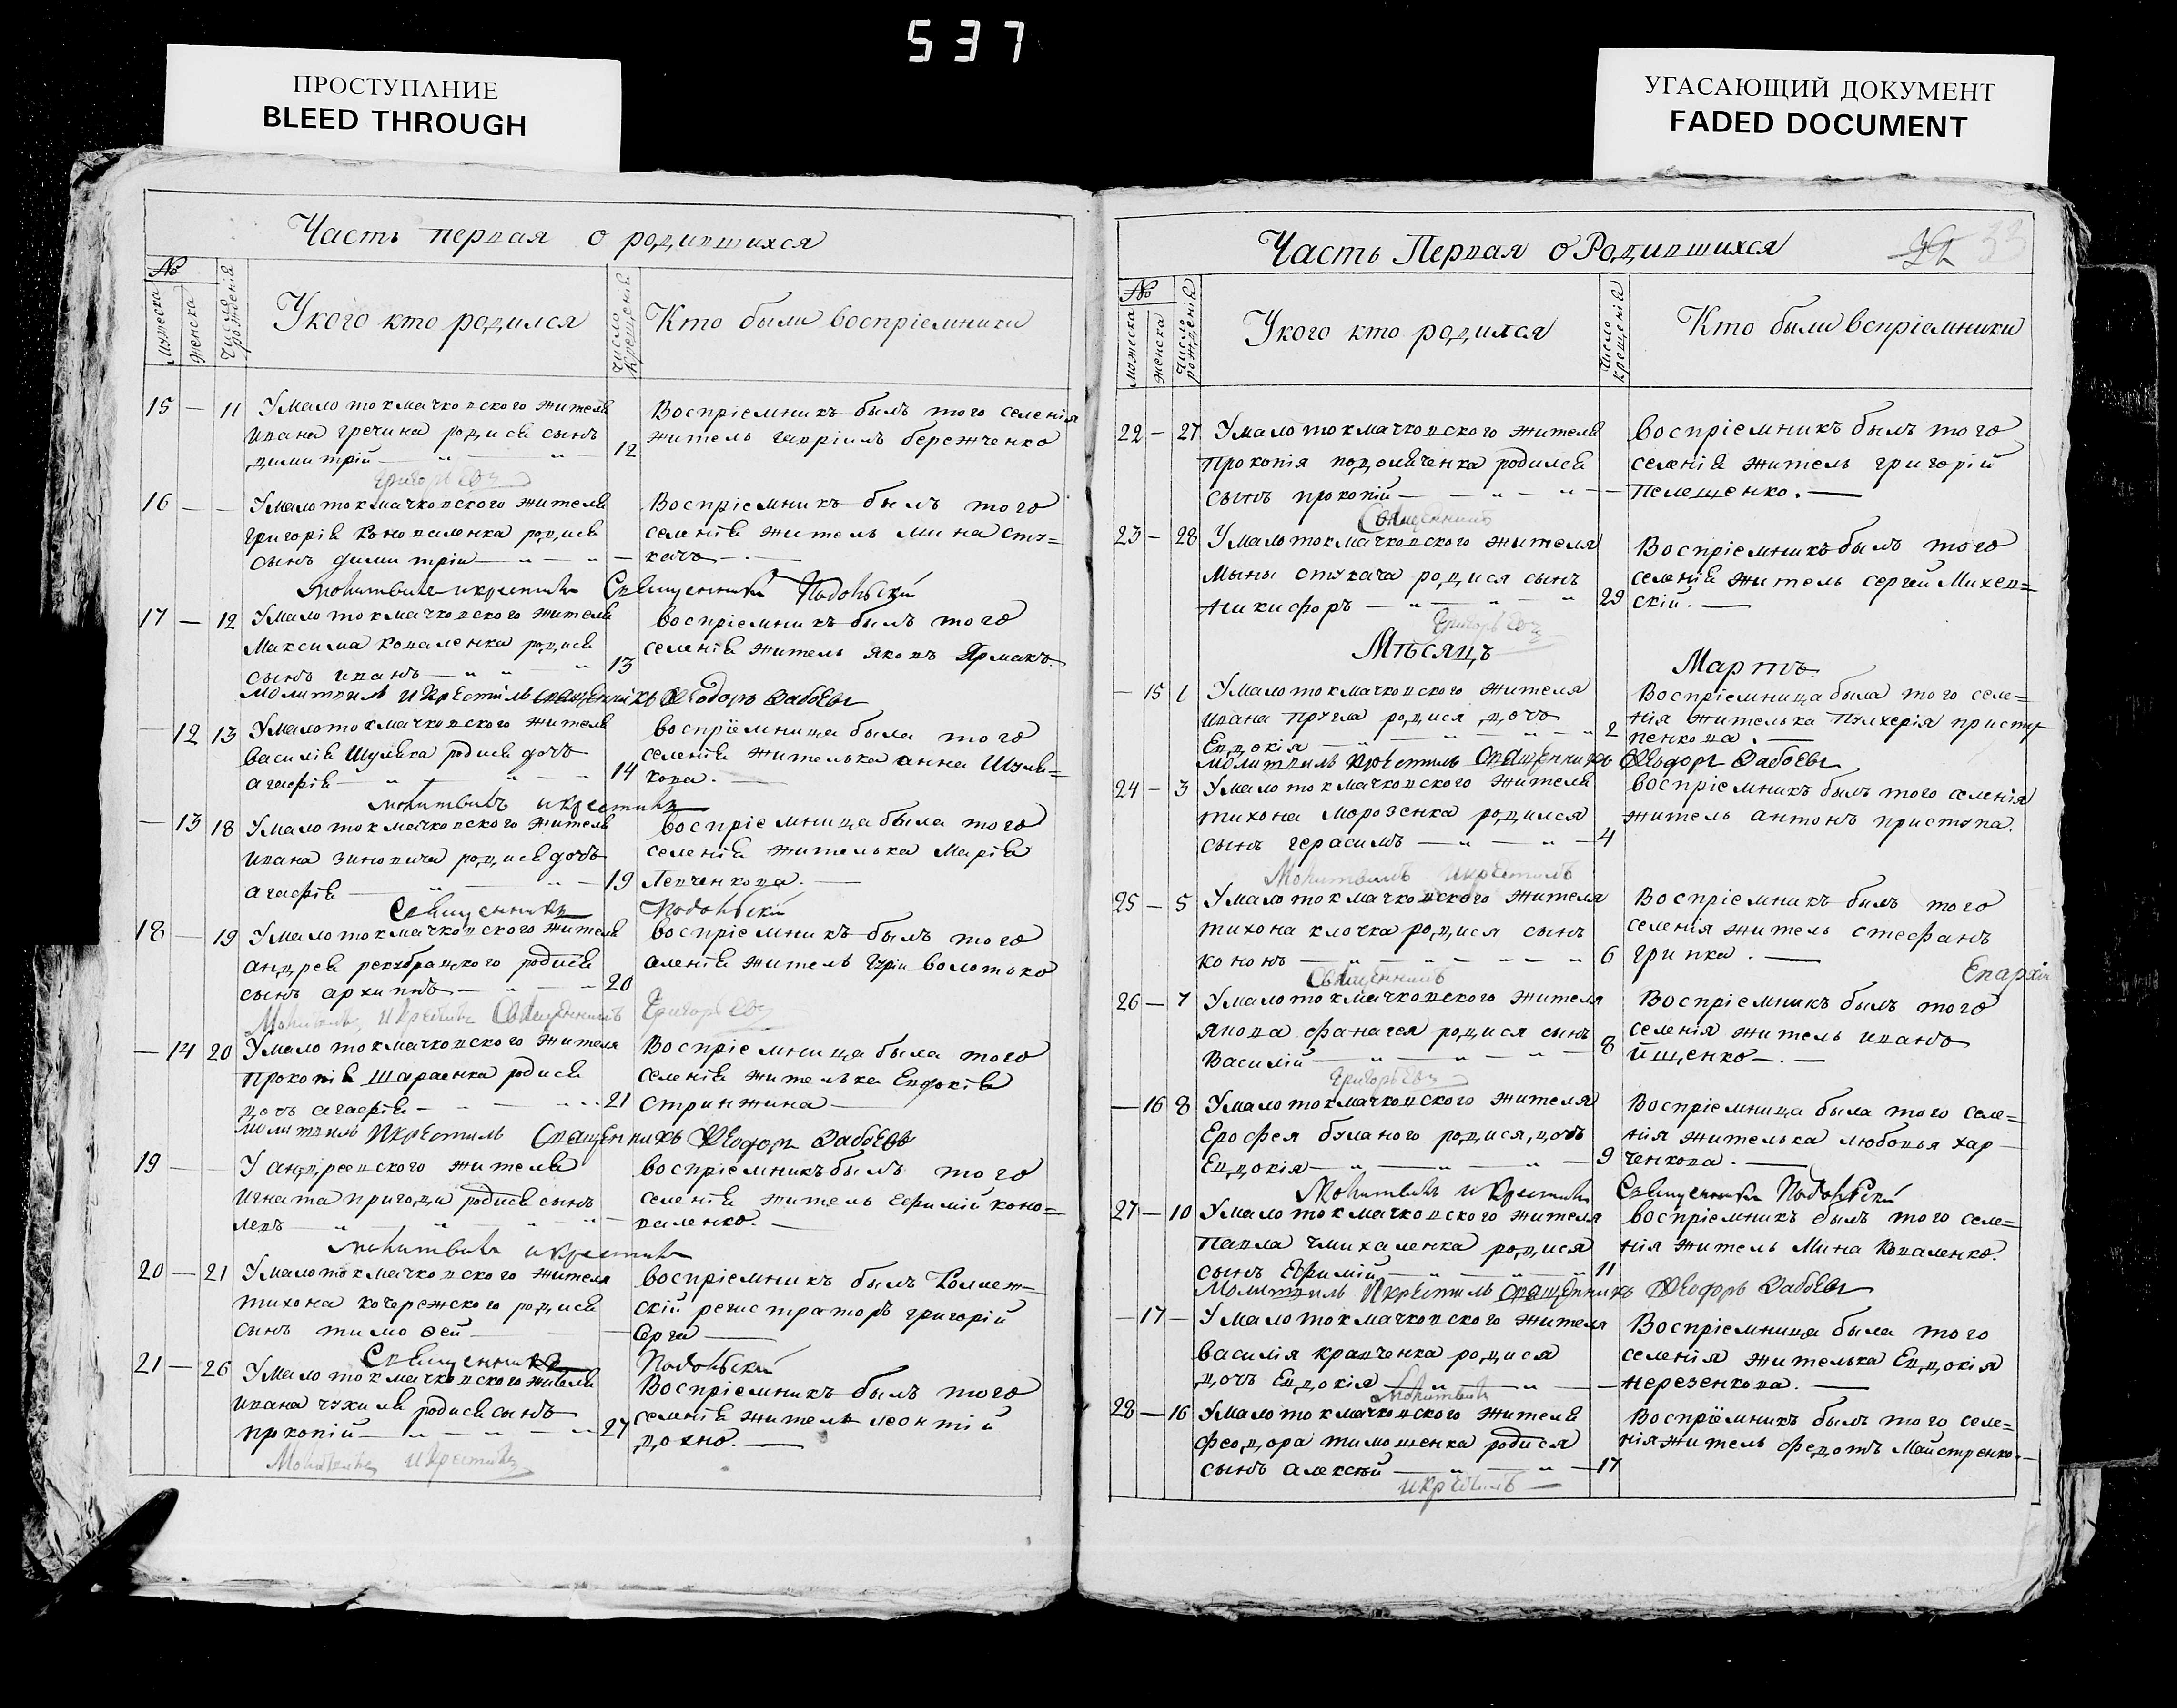 537
ПРОСТУПАНИЕ
BLEED THROUGH
УГАСАЮЩИЙ ДОКУМЕНТ
FADED DOCUMENT
Часть первая о родившихся
№
Мужеска
женска
Число рождения
У кого кто родился
Число крещенія
Кто были воспріемники
15 — 11 У малотокмачковского жителя
ивана гречина родися сынъ
димитрій 12
Воспріемникъ былъ того селенія
житель гавріилъ бережченко
Григорьевъ
16 — — У малотокмачковского жителя
григорія Коноваленка родися
сынъ димитрій —
Воспріемникъ былъ того
селенія житель мина сту=
качъ
молитвилъ икрестилъ Священникъ Подольский
17 — 12 У малотокмачковского жителя
Максима Коваленка родися
сынъ иванъ 13
воспріемникъ былъ того
селенія житель яковъ Ярмакъ
молитвилъ икрестилъ священникъ Феодоръ
— 12 13 У малотокмачковского жителя
василія Шулвка родися дочъ
агафія 14
воспріемница была того
селенія жителька анна Шулв=
кова.
молитвилъ икрестилъ
— 13 18 У малотокмачковского жителя
ивана зиновича родися дочъ
агафія 19
воспріемница была того
селенія жителька Марія
Левченкова.
Священникъ Подольский
18 — 19 У малотокмачковского жителя
андрея родися
сынъ архиппъ 20
воспріемникъ былъ того
селенія житель гурій волотоко
Молитвилъ, икрестилъ Священникъ Григорьевъ
— 14 20 У малотокмачковского жителя
Прокопія Шараенка родися
дочъ агафія 21
Воспріемница была того
селенія жителька Евдокія
Стринжина
молитвилъ Икрестилъ Священникъ Феодоръ
19 — — У андреевского жителя
Игната пригоди родися сынъ
левъ —
воспріемникъ былъ того
селенія житель Ефимій коно=
валенко.
молитвилъ икрестилъ
20 — 21 У малотокмачковского жителя
тихона кочережского родися
сынъ тимофей
воспріемникъ былъ Коллеж=
скій регистраторъ григорій
Серга
Священникъ Подольский
21 — 26 У малотокмачковского жителя
ивана чухиля родися сынъ
пркопій 27
Воспріемникъ былъ того
селенія житель леонтій
дохно.
Молитвилъ икрестилъ
Часть Первая о Родившихся 33
№
мужеска
женска
Число рожденія
У кого кто родился
Число крещенія
Кто были вспріемники
22 — 27 У малотокмачковского жителя
Прокопія подоляченка родился
сынъ прокопій —
воспріемникъ былъ того
селенія житель григорій
Пелещенко.
Священникъ
23 — 28 У малотокмачковского жителя
Мины стукача родися сынъ
никифоръ 29
Воспріемникъ былъ того
селенія житель сергей Михев=
скій.
Григорьевъ
Мѣсяцъ Мартъ
— 15 1 У малотокмачковского жителя
ивана Пругла родися дочъ
Евдокія 2
Воспріемница была того селе=
нія жителька Пулхерія присту
пенкова.
молитвилъ икрестилъ священникъ Феодоръ
24 — 3 У малотокмачковского жителя
тихона морозенка родился
сынъ герасимъ 4
воспріемникъ былъ того селенія
житель антонъ приступа.
Молитвилъ икрестилъ
25 — 5 У малотокмачковского жителя
тихона клочка родися сынъ
кононъ 6
Воспріемникъ былъ того
селенія житель стефанъ
гривка.
Священникъ
Епархія
26 — 7 У малотокмачковского жителя
якова фанагея родися сынъ
Василій 8
Воспріемникъ былъ того
селенія житель иванъ
йщенко.
Григорьевъ
— 16 8 У малотокмачковского жителя
Ерофея буланого родися дочъ
Евдокія 9
Воспріемница была того селе=
нія жителька любовья хар
ченкова.
Молитвилъ икрестилъ Священникъ Подольский
27 — 10 У малотокмачковского жителя
Павла чмихаленка родися
сынъ Ефимій 11
воспріемникъ былъ того селе=
нія житель Мина Коваленко.
Молитвилъ Икрестилъ священникъ Феодоръ
— 17 — У малотокмачковского жителя
василія кравченка родися
дочъ Евдокія —
Воспріемница была того
селенія жителька Евдокія
нерезенкова.
Молитвилъ
28 — 16 У малотокмачковского жителя
феодора тимошенка родися
сынъ алексѣй 17
Воспріемникъ былъ того селе=
нія житель федотъ Майстренко.
икрестилъ